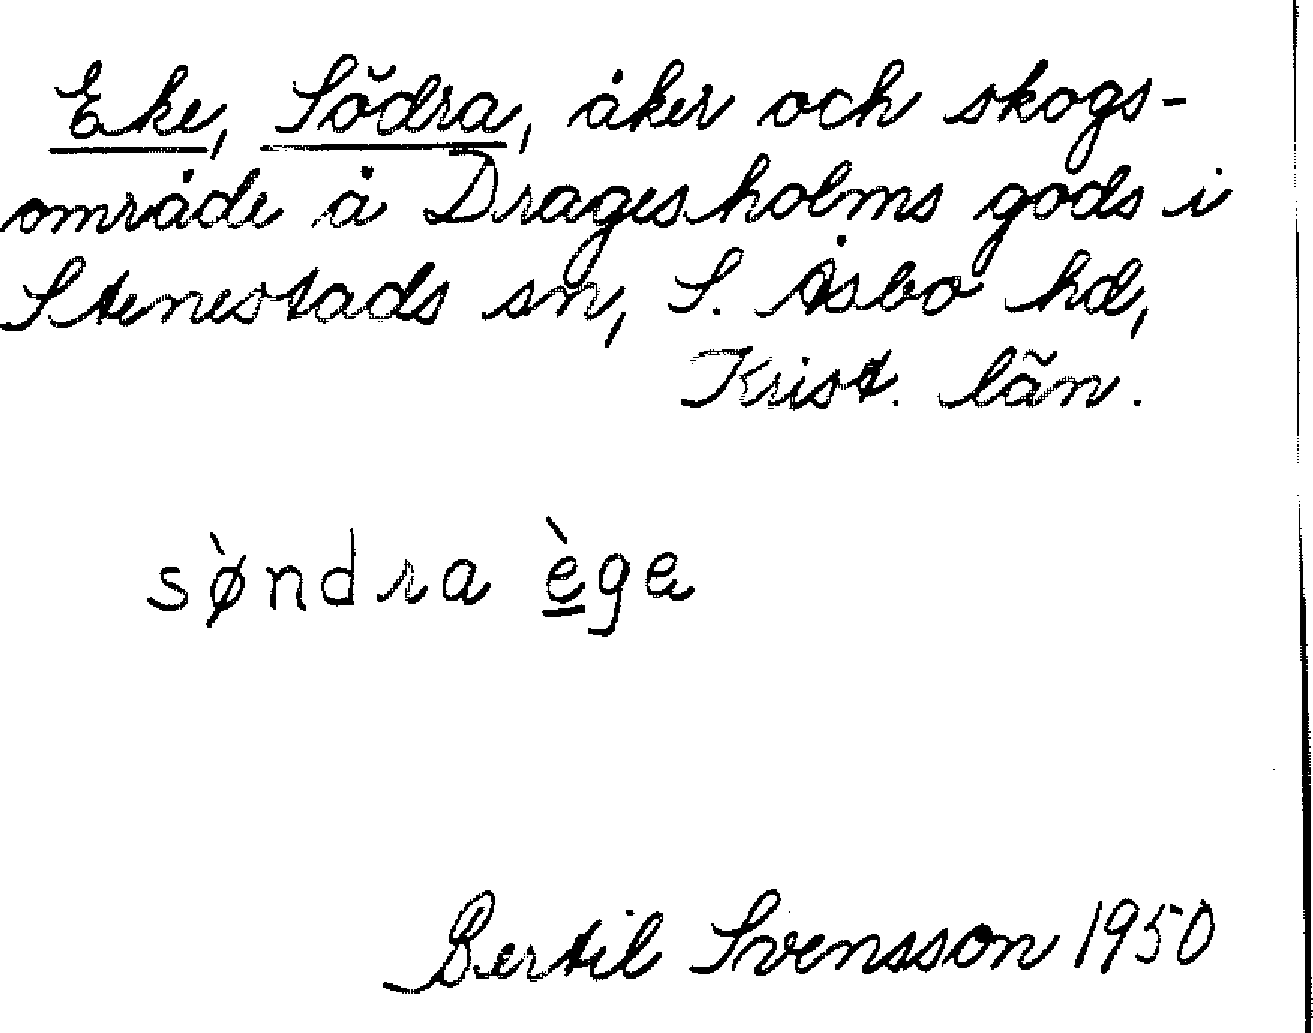 Eke, Södra, åker och skogs-
område å Dragesholms gods i
Stenestads sn, S. Åsbo hd,
Krist. län.
sø̀ndra è̲ge
Bertil Svensson 1950